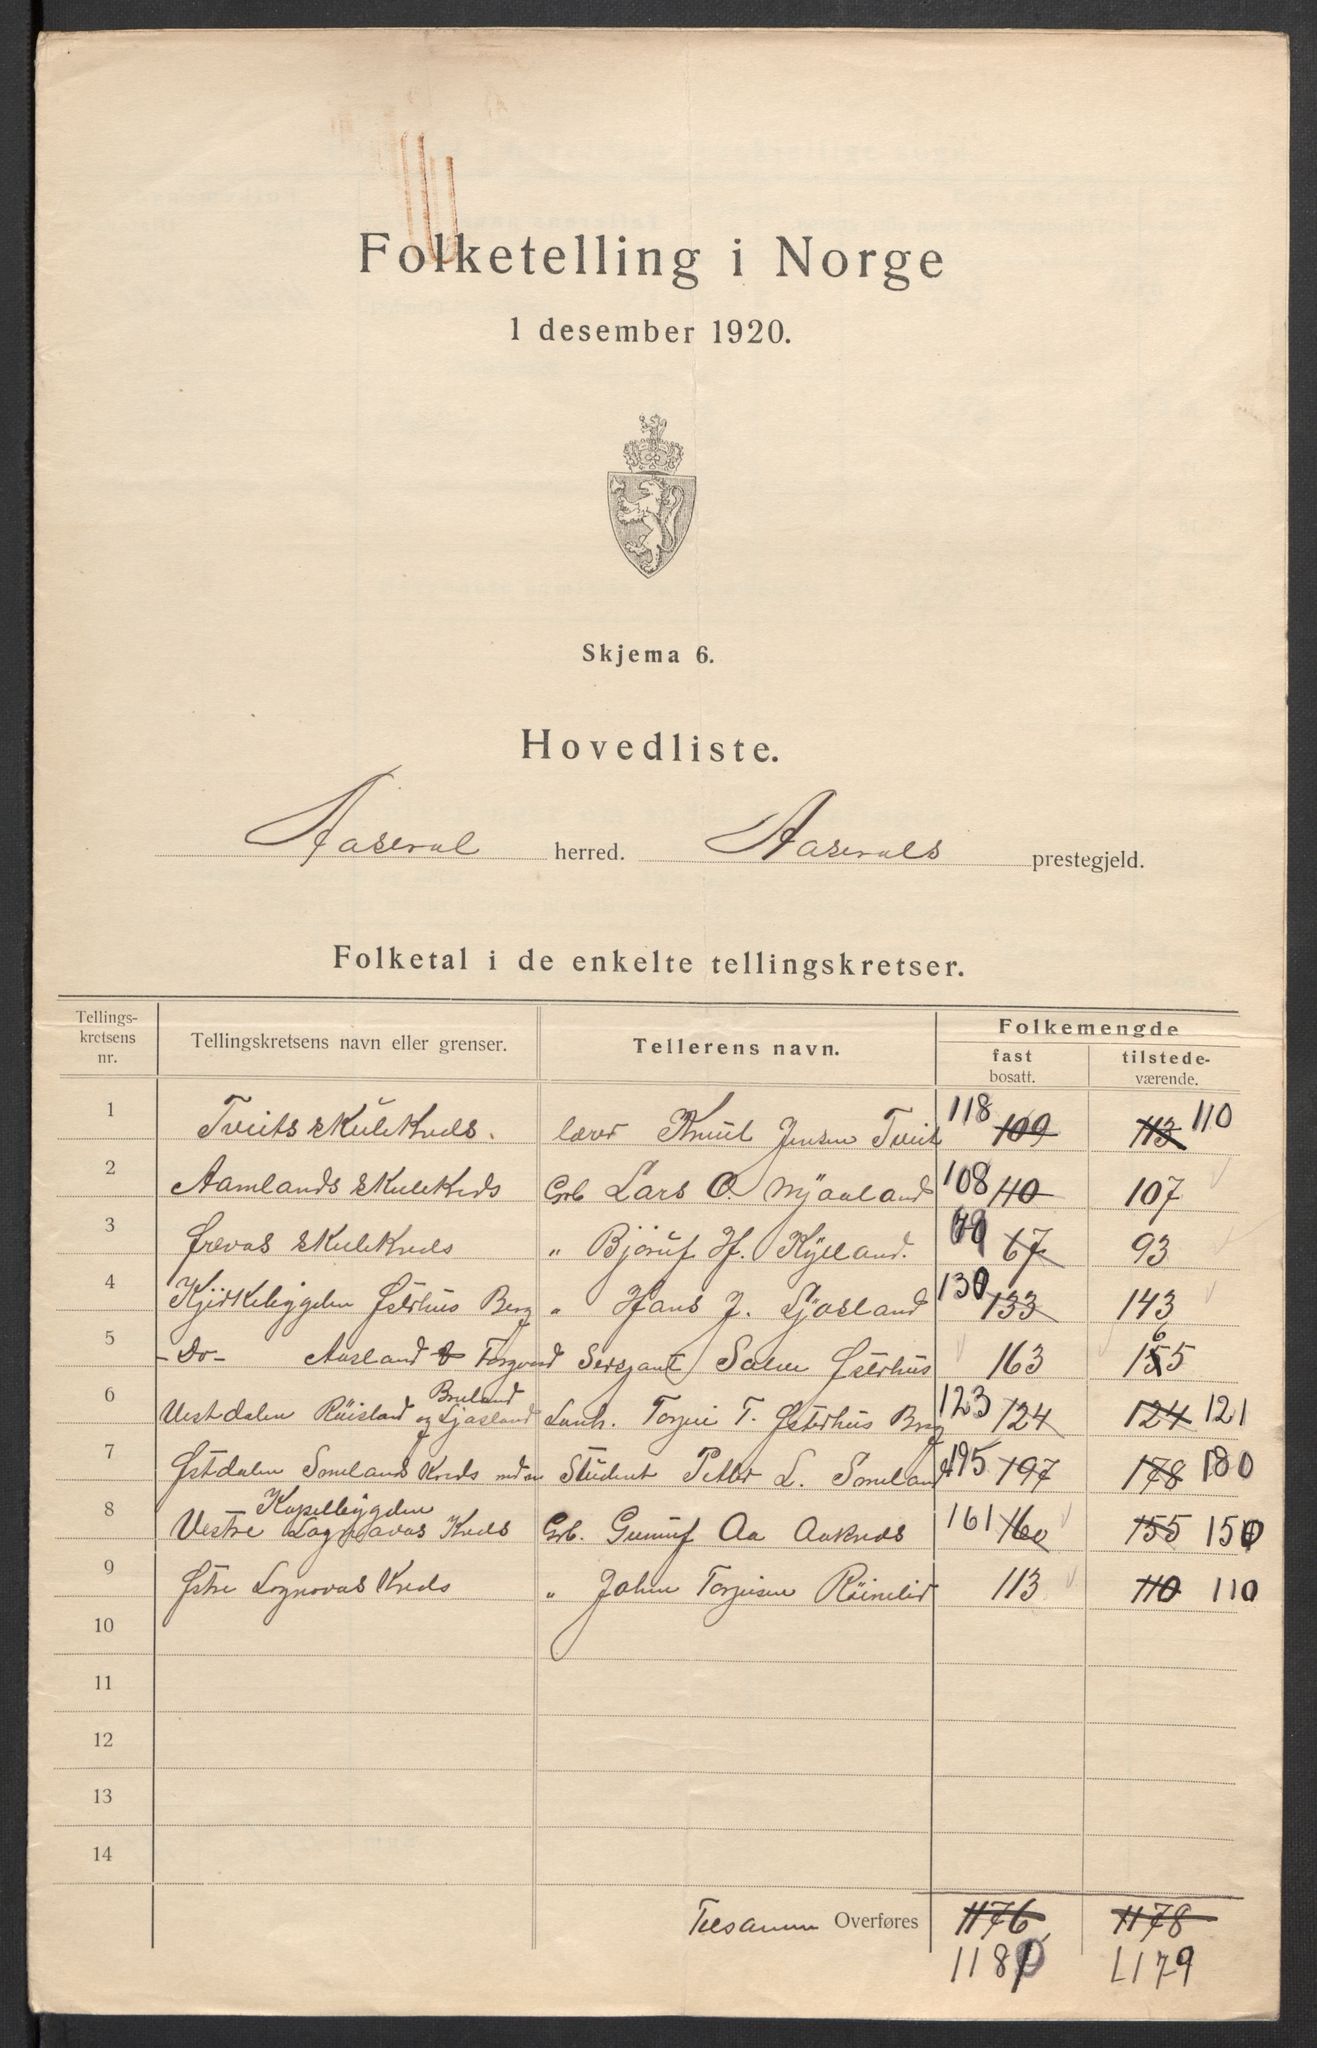 Folketelling i Norge
1 desember 1920.
Skjema 6.
Hovedliste.
Aaseral herred. Aaserals prestegjeld.
Folketal i de enkelte tellingskretser.
Tellings-
kretsens
nr.
Tellingskretsens navn eller grenser.
Tellerens navn.
Folkemengde
fast
bosatt.
tilstede-
værende.
1 Tveits skulekreds. lærer Knut Jensen Tveit 118 109 113 110
2 Aamlands skulekreds Grb Lars O. Mjaaland 108 110 107
3 skulekreds " Bjørulf H. Kylland. 67 93
4 Kjirkebygden Østerhus Berg " Hans J. Ljosland 130 133 143
5 -Do- Aasland Sersjant Salve Østerhus 163 155 6
6 Vestdalen Røisland og Ljosland Breland Lanh. Torjei T. Østerhus Berg 123 124 124 121
7 Østdalen Somelands Kreds Student Petter L. Someland 195 197 178 180
8 Vestre Lognavas Kreds Kapelbygden Grb. Gunuf Aa Aakreds 161 160 155 150
9 Østre Lognavas Kreds " John Torjusen Røinelid 113 110 110
10
11
12
13
14
Tilsamm Overføres 1176 1178
1180 1179